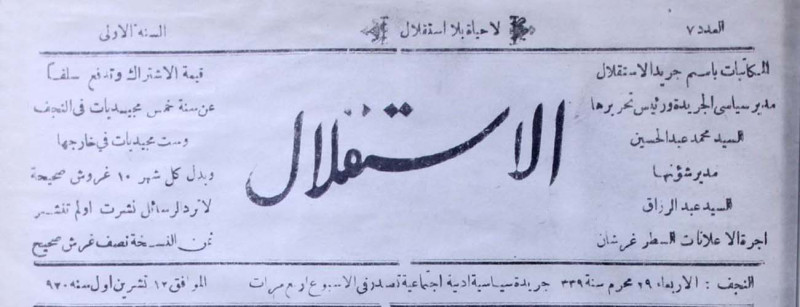 العدد ٧
لا حياة بلا استقلال
السنة الاولى
المكاتبات باسم جريد الاستقلال
مدير سياسي الجريدة ورئيس تحريرها
السيد محمد عبد الحسين
مدير شؤنها
السيد عبد الرزاق
اجرة الاعلانات السطر غرشان
الاستقلال
قيمة الاشتراك وتدفع سلفا
عن سنة خمس مجيديات في النجف
وست مجيديات في خارجها
وبدل كل شهر ١٠ غروش صحيحة
لا ترد الرسائل نشرت اولم تنشر
ثمن النسخة نصف غرش صحيح
النجف : الاربعاء ٢٩ محرم سنة ٣٣٩
جريدة سياسية ادبية اجتماعية تصدر في الاسبوع اربع مرات
الموافق ١٢ تشرين اول سنه ٩٢٠